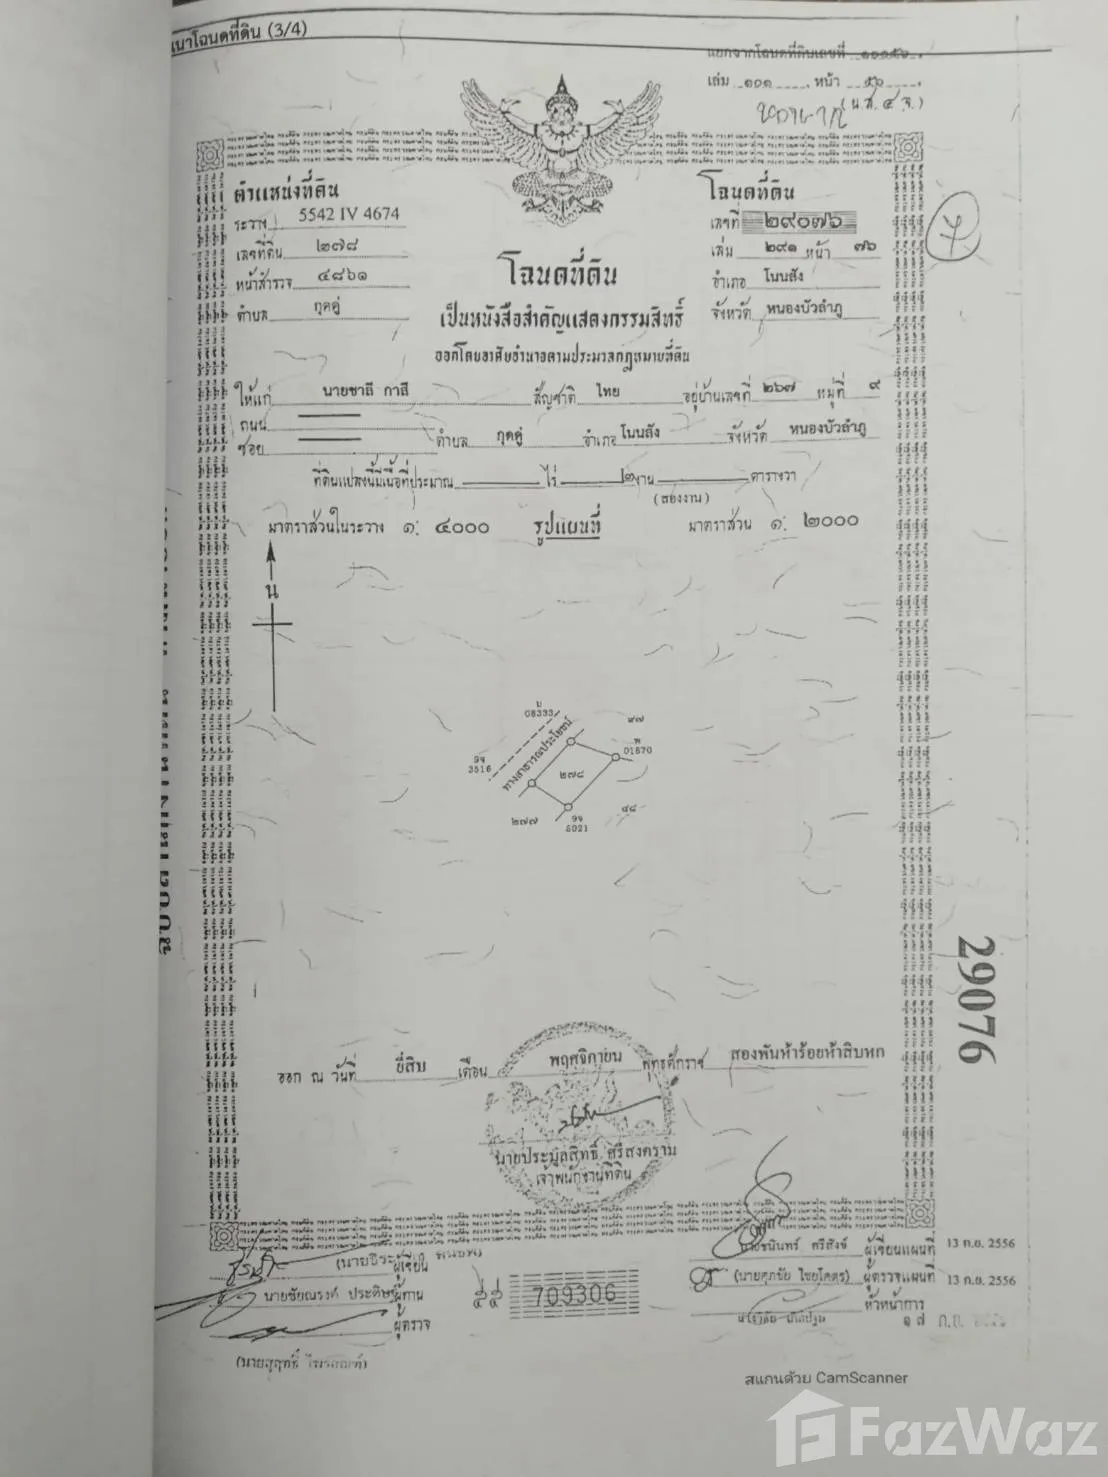 เนาโฉนดที่ดิน (3/4)
แยกจากโฉนดที่ดินเลขที่ ๑๐๑๕๖
เล่ม ๑๐๑ หน้า ๕๖
(น.ส.๔ จ.)
ตำแหน่งที่ดิน
ระวาง 5542 IV 4674
เลขที่ดิน ๒๗๘
หน้าสำรวจ ๔๘๖๑
ตำบล กุดดู่
โฉนดที่ดิน
เลขที่ ๒๙๐๗๖
เล่ม ๒๙๑ หน้า ๗๖
อำเภอ โนนสัง
จังหวัด หนองบัวลำภู
โฉนดที่ดิน
เป็นหนังสือสำคัญแสดงกรรมสิทธิ์
ออกโดยอาศัยอำนาจตามประมวลกฎหมายที่ดิน
ให้แก่ นายชาลี กาสี สัญชาติ ไทย อยู่บ้านเลขที่ ๒๖๗ หมู่ที่ ๙
ถนน
ซอย ตำบล กุดดู่ อำเภอ โนนสัง จังหวัด หนองบัวลำภู
ที่ดินแปลงนี้มีเนื้อที่ประมาณ ไร่ ๒ งาน ตารางวา
(สองงาน)
มาตราส่วนในระวาง ๑: ๔๐๐๐ รูปแผนที่ มาตราส่วน ๑: ๒๐๐๐
น
บ
08333
๙๗
พ
01670
9จ
3516
ทางสาธารณประโยชน์
๒๗๘
๒๗๗
9จ
5021
๔๘
29076
ออก ณ วันที่ ยี่สิบ เดือน พฤศจิกายน พุทธศักราช สองพันห้าร้อยห้าสิบหก
นายประมูลสิทธิ์ ศรีสงคราม
เจ้าพนักงานที่ดิน
ผู้เขียน
นายชัยณรงค์ ประดิษฐ ผู้ทาน
ผู้ตรวจ
๕๕ 709306
นายชนินทร์ ศรีสังข์ ผู้เขียนแผนที่ 13 ก.ย. 2556
(นายศุภชัย ไชยโคตร) ผู้ตรวจแผนที่ 13 ก.ย. 2556
หัวหน้าการ
สแกนด้วย CamScanner
FazWaz